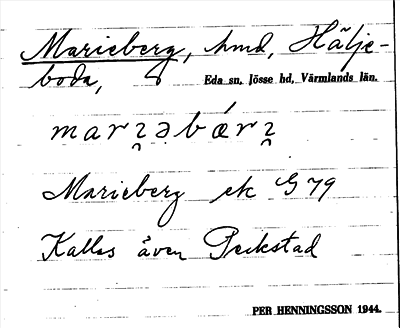 Marieberg, hmd, Hälje-
boda, Eda sn, Jösse hd, Värmlands län.
Marieberg ek G 79
Kallas även Perkstad
PER HENNINGSSON 1944.